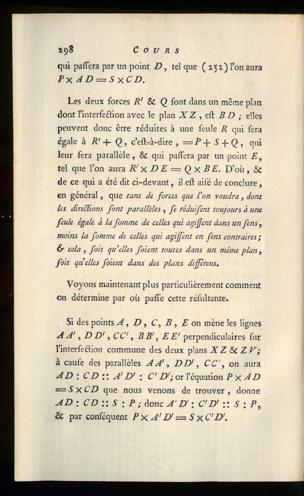 298 COURS
qui passera par un point D, tel que (252) l'on aura
P × AD = S × CD.
Les deux forces R' & Q sont dans un même plan
dont l'intersection avec le plan XZ, est BD; elles
peuvent donc être réduites à une seule R qui sera
égale à R' + Q, c'est-à-dire, = P + S + Q, qui
leur sera parallèle, & qui passera par un point E,
tel que l'on aura R' × DE = Q × BE. D'où, &
de ce qui a été dit ci-devant, il est aisé de conclure,
en général, que tant de forces que l'on voudra, dont
les directions sont parallèles, se réduisent toujours à une
seule égale à la somme de celles qui agissent dans un sens,
moins la somme de celles qui agissent en sens contraires;
& cela, soit qu'elles soient toutes dans un même plan,
soit qu'elles soient dans des plans différens.
Voyons maintenant plus particulièrement comment
on détermine par où passe cette résultante.
Si des points A, D, C, B, E on mène les lignes
AA', DD', CC', BB', EE' perpendiculaires sur
l'intersection commune des deux plans XZ & ZV;
à cause des parallèles AA', DD', CC', on aura
AD : CD :: A'D' : C'D'; or l'équation P × AD
= S × CD que nous venons de trouver, donne
AD : CD :: S : P; donc A'D' : C'D' :: S : P,
& par conséquent P × A'D' = S × C'D'.